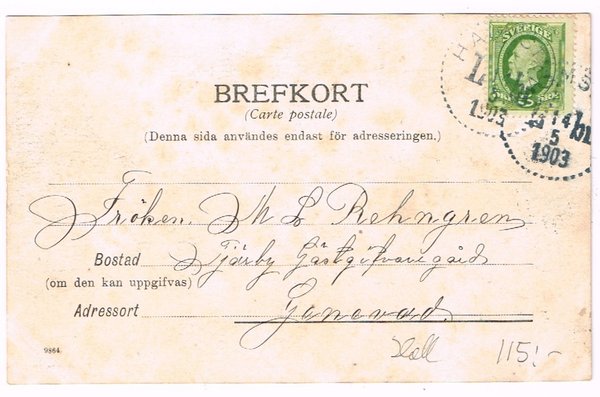 SVERIGE
5
1903
14
5
1903
BREFKORT
(Carte postale)
(Denna sida användes endast för adresseringen.)
Fröken M L Rehngren
Bostad Tjärby Gästgifvaregård
(om den kan uppgifvas)
Adressort Genevad
Hall 115:-
9864